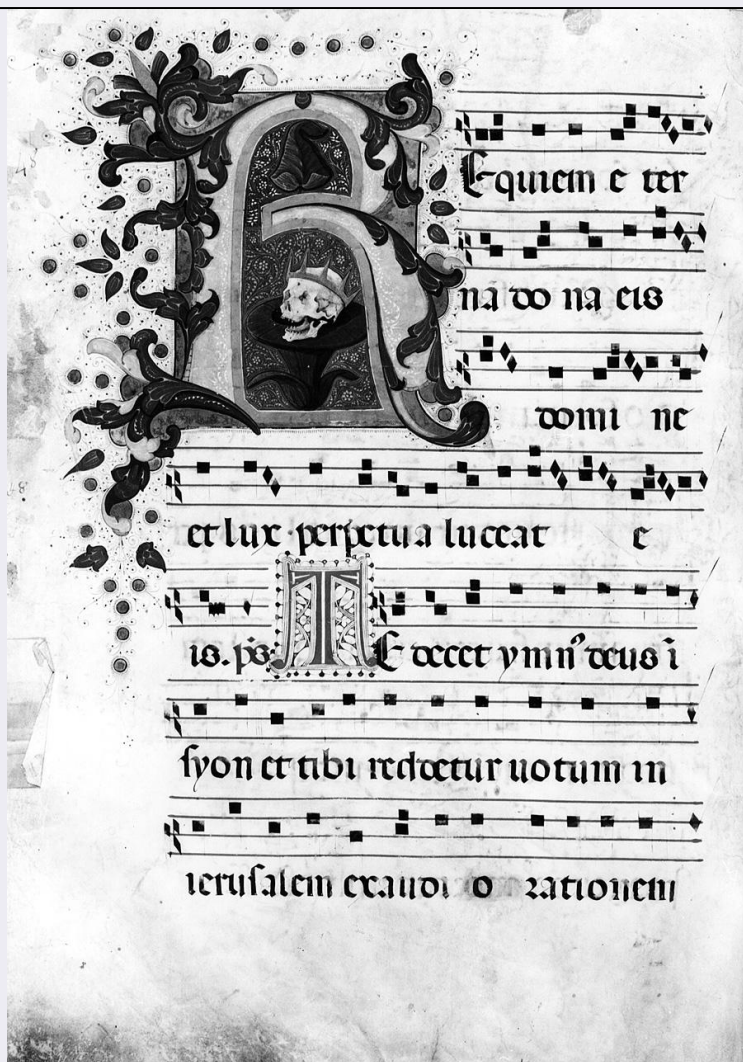 REquiem e ter
nā do na eis
domi ne
et lux perpetua luceat e
is. ps̄ TE decet ymn⁹ deus ī
syon et tibi reddetur uotum in
ierusalem exaudi o rationem